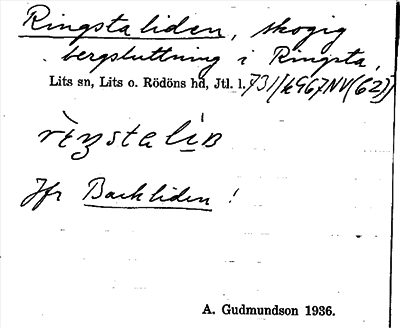 Ringstaliden, skogig
bergsluttning i Ringsta,
Lits sn, Lits o. Rödöns hd, Jtl. l. 731/(k967NV(62))
Jfr Backliden !
A. Gudmundson 1936.